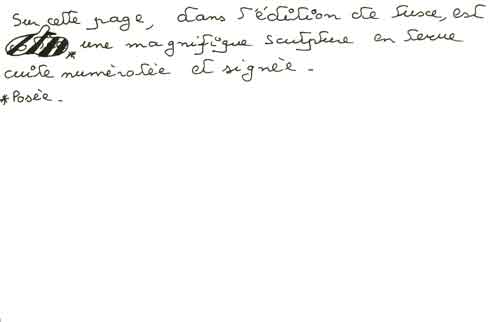 Sur cette page, dans l'édition de luxe, est
* une magnifique sculpture en terre
cuite numérotée et signée.
*Posée.